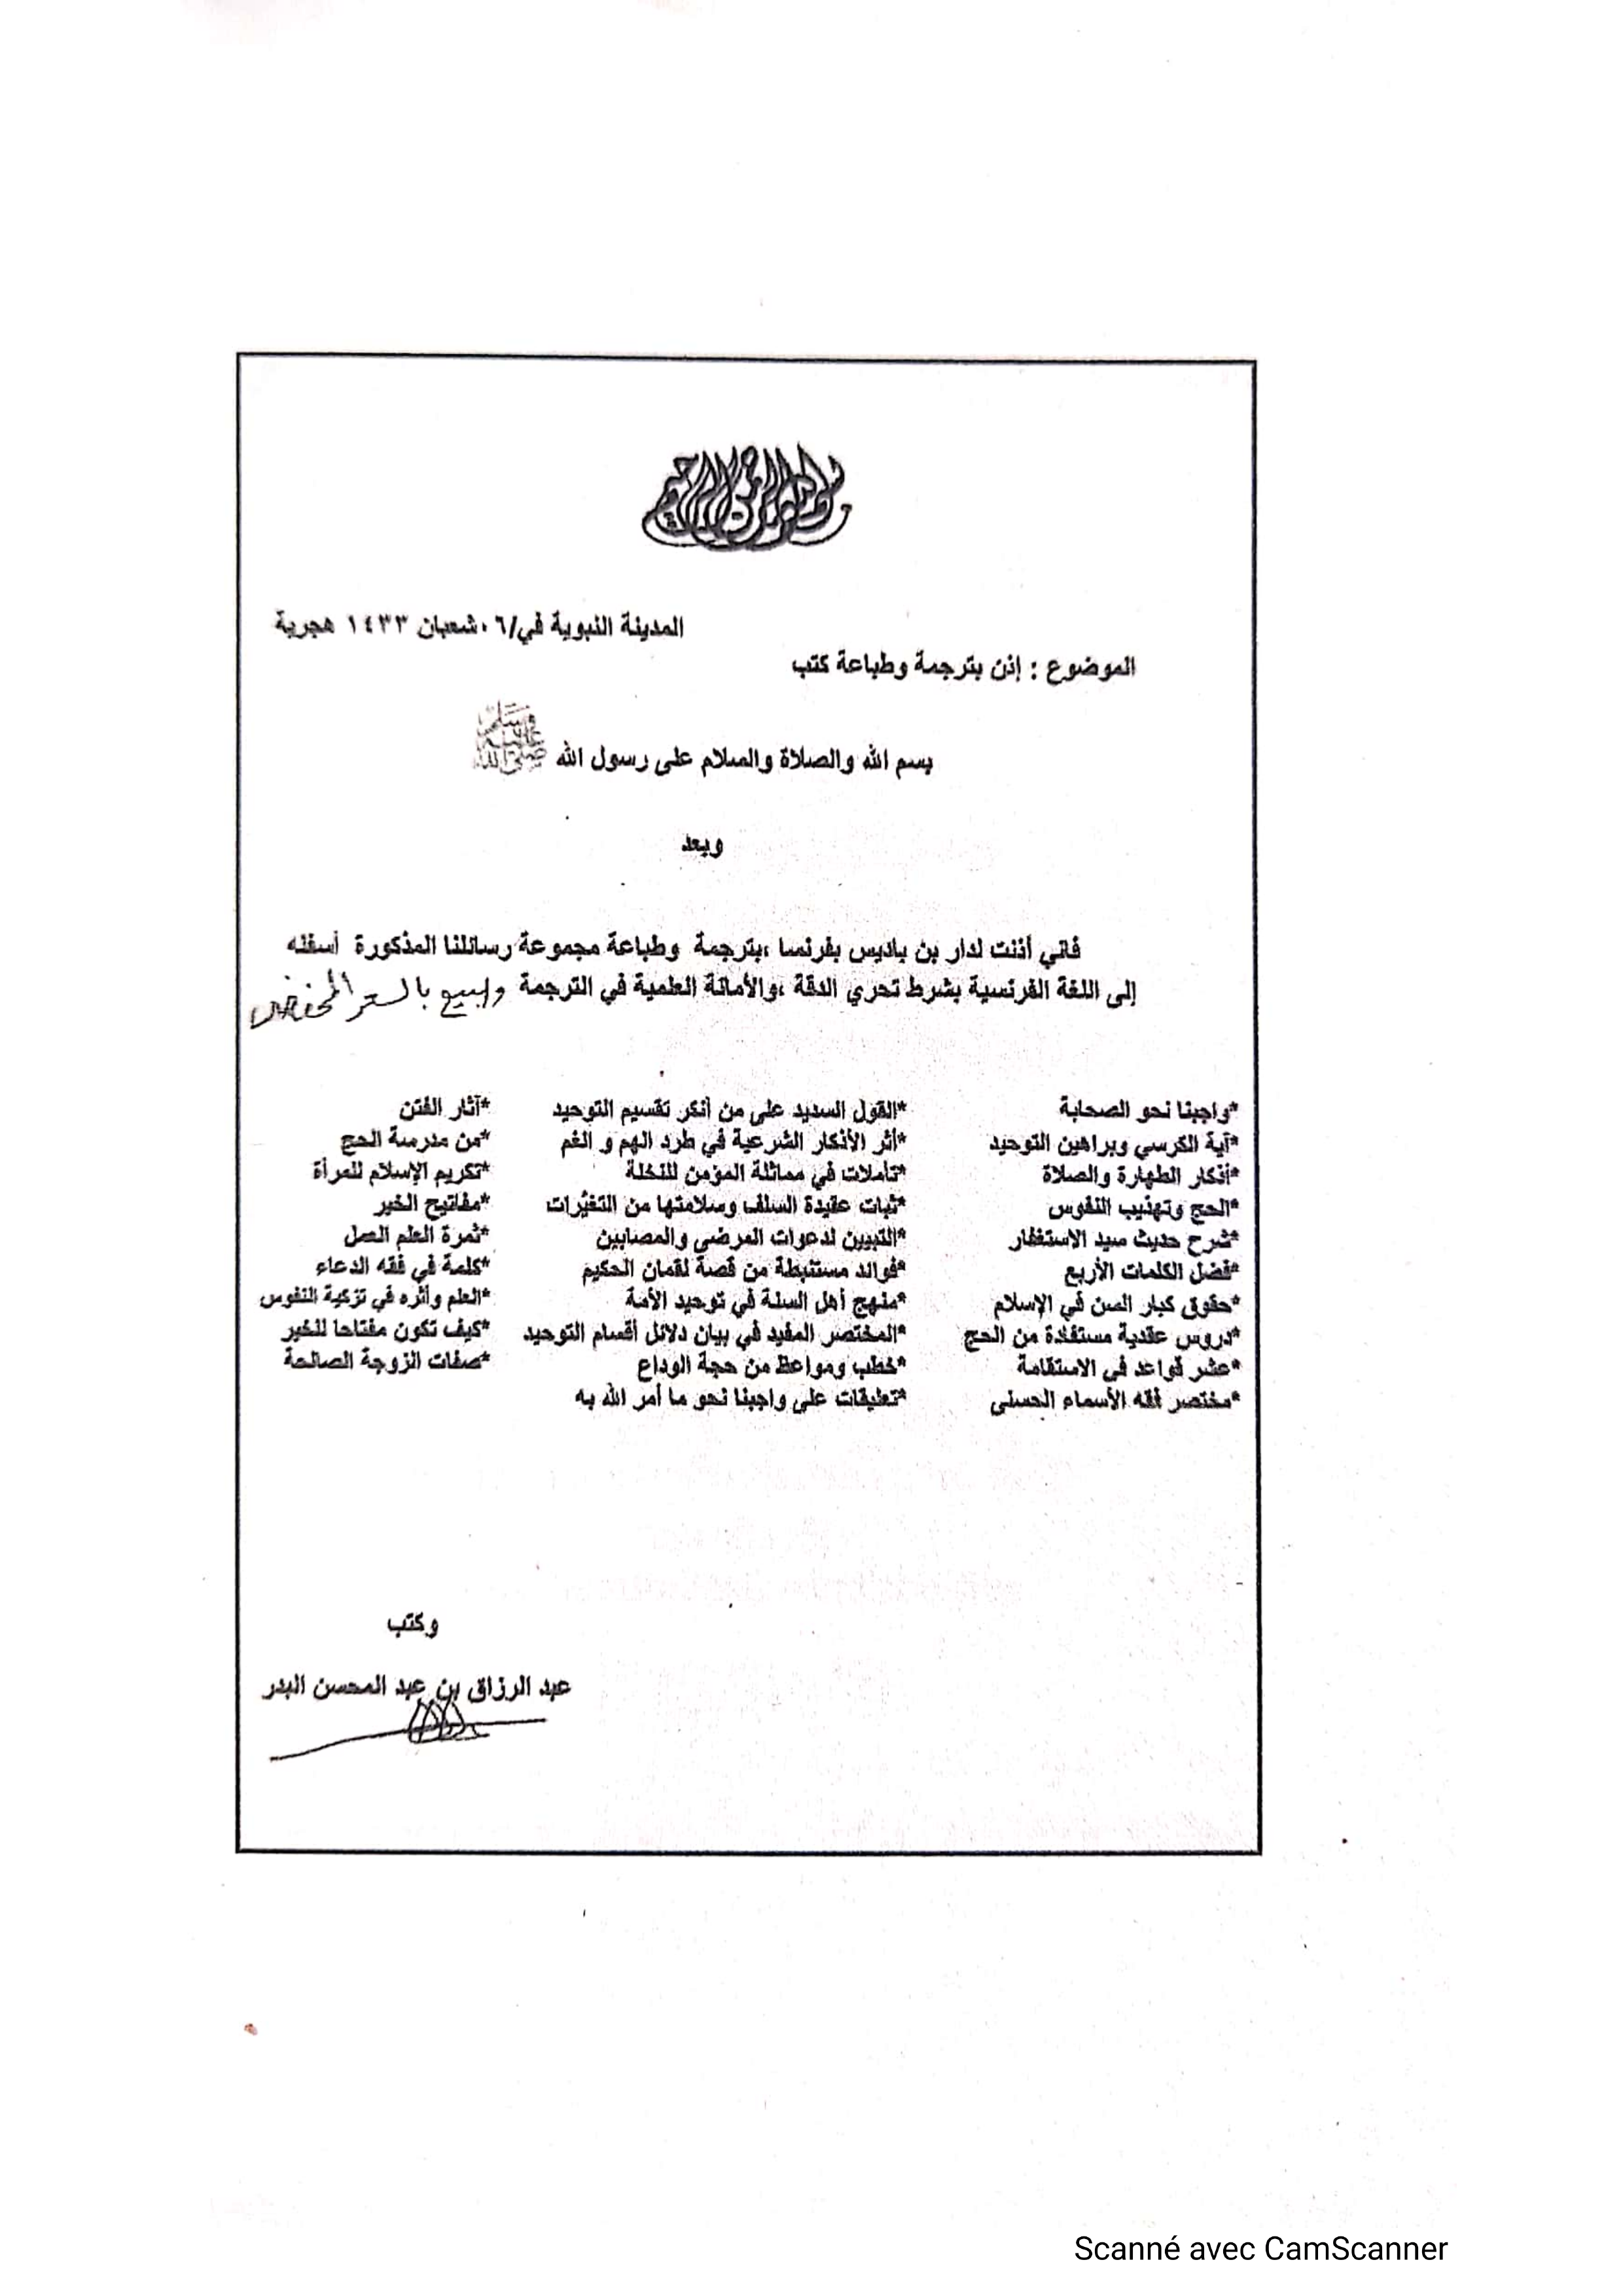 بسم الله الرحمن الرحيم
المدينة النبوية في/٠٦شعبان ١٤٣٣ هجرية
الموضوع : إذن بترجمة وطباعة كتب
بسم الله والصلاة والسلام على رسول الله صلى الله عليه وسلم
وبعد
فاني أذنت لدار بن باديس بفرنسا ،بترجمة وطباعة مجموعة رسائلنا المذكورة أسفله
إلى اللغة الفرنسية بشرط تحري الدقة ،والأمانة العلمية في الترجمة والبيع بالسعر المخفض
*واجبنا نحو الصحابة
*آية الكرسي وبراهين التوحيد
*أذكار الطهارة والصلاة
*الحج وتهذيب النفوس
*شرح حديث سيد الاستغفار
*فضل الكلمات الأربع
*حقوق كبار السن في الإسلام
*دروس عقدية مستفادة من الحج
*عشر قواعد في الاستقامة
*مختصر فقه الأسماء الحسنى
*القول السديد على من أنكر تقسيم التوحيد
*أثر الأذكار الشرعية في طرد الهم و الغم
*تأملات في مماثلة المؤمن للنخلة
*ثبات عقيدة السلف وسلامتها من التغيرات
*التبيين لدعوات المرضى والمصابين
*فوائد مستنبطة من قصة لقمان الحكيم
*منهج أهل السنة في توحيد الأمة
*المختصر المفيد في بيان دلائل أقسام التوحيد
*خطب ومواعظ من حجة الوداع
*تعليقات على واجبنا نحو ما أمر الله به
*آثار الفتن
*من مدرسة الحج
*تكريم الإسلام للمرأة
*مفاتيح الخير
*ثمرة العلم العمل
*كلمة في فقه الدعاء
*العلم وأثره في تزكية النفوس
*كيف تكون مفتاحا للخير
*صفات الزوجة الصالحة
وكتب
عبد الرزاق بن عبد المحسن البدر
Scanné avec CamScanner